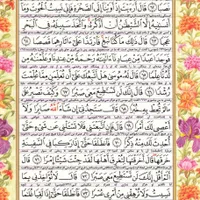 نَصَبًا ﴿٦٢﴾ قَالَ أَرَأَيْتَ إِذْ أَوَيْنَا إِلَى الصَّخْرَةِ فَإِنِّي نَسِيتُ الْحُوتَ وَمَا
أَنْسَانِيهُ إِلَّا الشَّيْطَانُ أَنْ أَذْكُرَهُ وَاتَّخَذَ سَبِيلَهُ فِي الْبَحْرِ
عَجَبًا ﴿٦٣﴾ قَالَ ذَلِكَ مَا كُنَّا نَبْغِ فَارْتَدَّا عَلَى آثَارِهِمَا قَصَصًا ﴿٦٤﴾
فَوَجَدَا عَبْدًا مِنْ عِبَادِنَا آتَيْنَاهُ رَحْمَةً مِنْ عِنْدِنَا وَعَلَّمْنَاهُ مِنْ
لَدُنَّا عِلْمًا ﴿٦٥﴾ قَالَ لَهُ مُوسَى هَلْ أَتَّبِعُكَ عَلَى أَنْ تُعَلِّمَنِ مِمَّا
عُلِّمْتَ رُشْدًا ﴿٦٦﴾ قَالَ إِنَّكَ لَنْ تَسْتَطِيعَ مَعِيَ صَبْرًا ﴿٦٧﴾ وَكَيْفَ تَصْبِرُ عَلَى مَا
لَمْ تُحِطْ بِهِ خُبْرًا ﴿٦٨﴾ قَالَ سَتَجِدُنِي إِنْ شَاءَ اللَّهُ صَابِرًا وَلَا
أَعْصِي لَكَ أَمْرًا ﴿٦٩﴾ قَالَ فَإِنِ اتَّبَعْتَنِي فَلَا تَسْأَلْنِي عَنْ شَيْءٍ حَتَّى
أُحْدِثَ لَكَ مِنْهُ ذِكْرًا ﴿٧٠﴾ فَانْطَلَقَا حَتَّى إِذَا رَكِبَا فِي السَّفِينَةِ
خَرَقَهَا قَالَ أَخَرَقْتَهَا لِتُغْرِقَ أَهْلَهَا لَقَدْ جِئْتَ شَيْئًا إِمْرًا ﴿٧١﴾ قَالَ
أَلَمْ أَقُلْ إِنَّكَ لَنْ تَسْتَطِيعَ مَعِيَ صَبْرًا ﴿٧٢﴾ قَالَ لَا تُؤَاخِذْنِي بِمَا
نَسِيتُ وَلَا تُرْهِقْنِي مِنْ أَمْرِي عُسْرًا ﴿٧٣﴾ فَانْطَلَقَا حَتَّى إِذَا